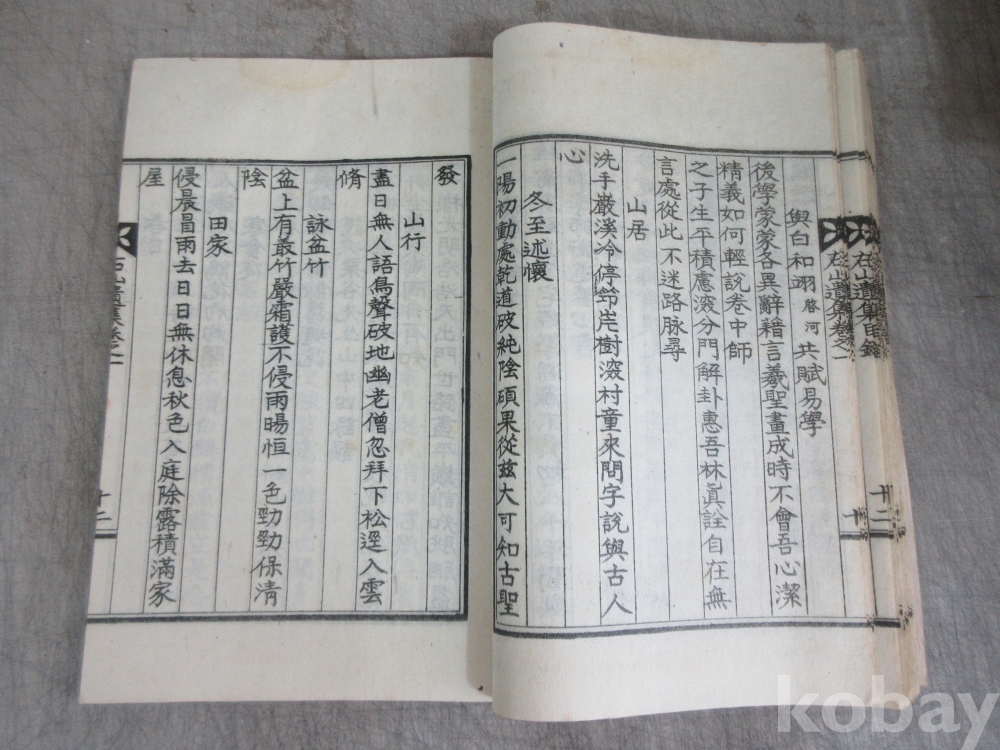 與白和翊啓河共賦易學
後學蒙蒙各異辭藉言羲聖畫成時不會吾心潔
精義如何輕說卷中師
之子生平積慮深分門解卦惠吾林眞詮自在無
言處從此不迷路脉尋
山居
洗手巖溪冷停筇岸樹深村童來問字說與古人
心
冬至述懷
一陽初動處乾道破純陰碩果從玆大可知古聖
發
山行
盡日無人語鳥聲破地幽老僧忽拜下松逕入雲
脩
詠盆竹
盆上有叢竹嚴霜護不侵雨暘恒一色勁勁保淸
陰
田家
侵晨冒雨去日日無休息秋色入庭除露積滿家
屋
石山遺集卷之一
十二
kobay